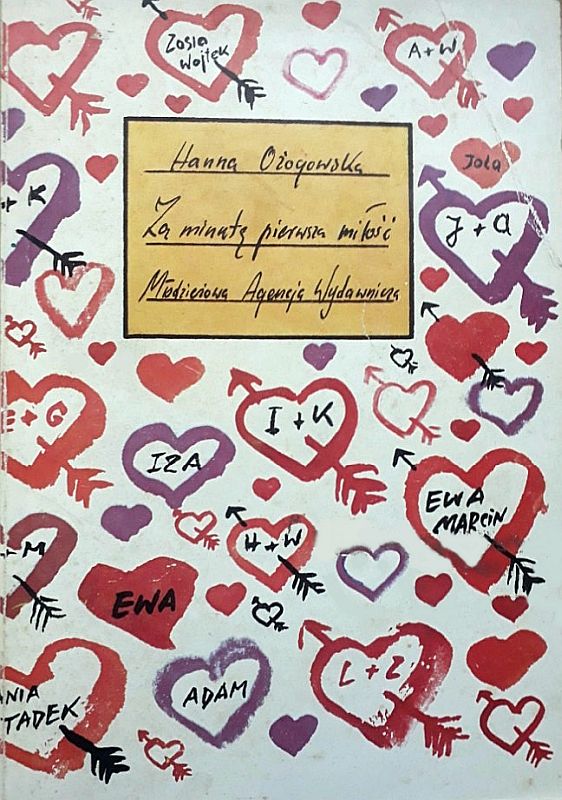 Zosia
Wojtek
A+W
Hanna Ożogowska
Jola
Za minutę pierwsza miłość
+ K
J + A
Młodzieżowa Agencja Wydawnicza
+ G
I + K
IZA
EWA
MARCIN
H+W
+M
EWA
L + Z
ANIA
TADEK
ADAM